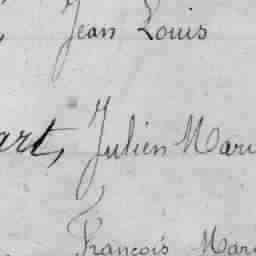 , Jean Louis
art, Julien Mari
François Mar